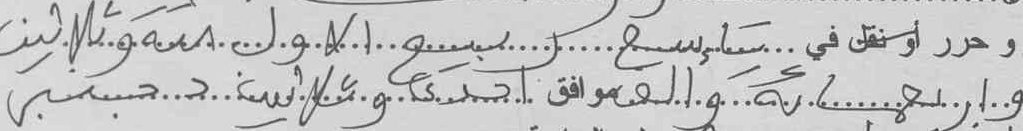 و حرر أو نقل في تاسع ربيع الاول ستة وثلاثين
واربعمائة والف موافق احدى وثلاثين ديسمبر